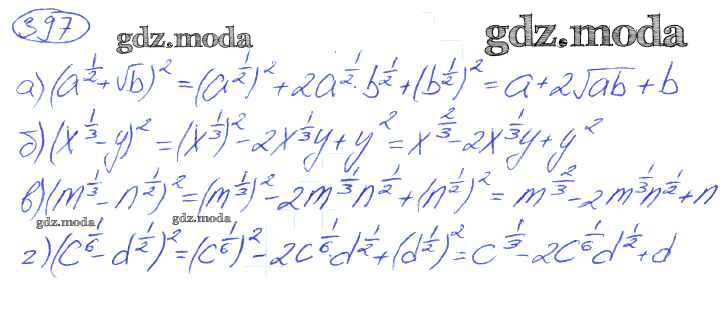 397
gdz.moda gdz.moda
а) (a^{1/2} + √b)^2 = (a^{1/2})^2 + 2a^{1/2} · b^{1/2} + (b^{1/2})^2 = a + 2√ab + b
б) (x^{1/3} - y)^2 = (x^{1/3})^2 - 2x^{1/3}y + y^2 = x^{2/3} - 2x^{1/3}y + y^2
в) (m^{1/3} - n^{1/2})^2 = (m^{1/3})^2 - 2m^{1/3}n^{1/2} + (n^{1/2})^2 = m^{2/3} - 2m^{1/3}n^{1/2} + n
gdz.moda gdz.moda
г) (c^{1/6} - d^{1/2})^2 = (c^{1/6})^2 - 2c^{1/6} · d^{1/2} + (d^{1/2})^2 = c^{1/3} - 2c^{1/6}d^{1/2} + d